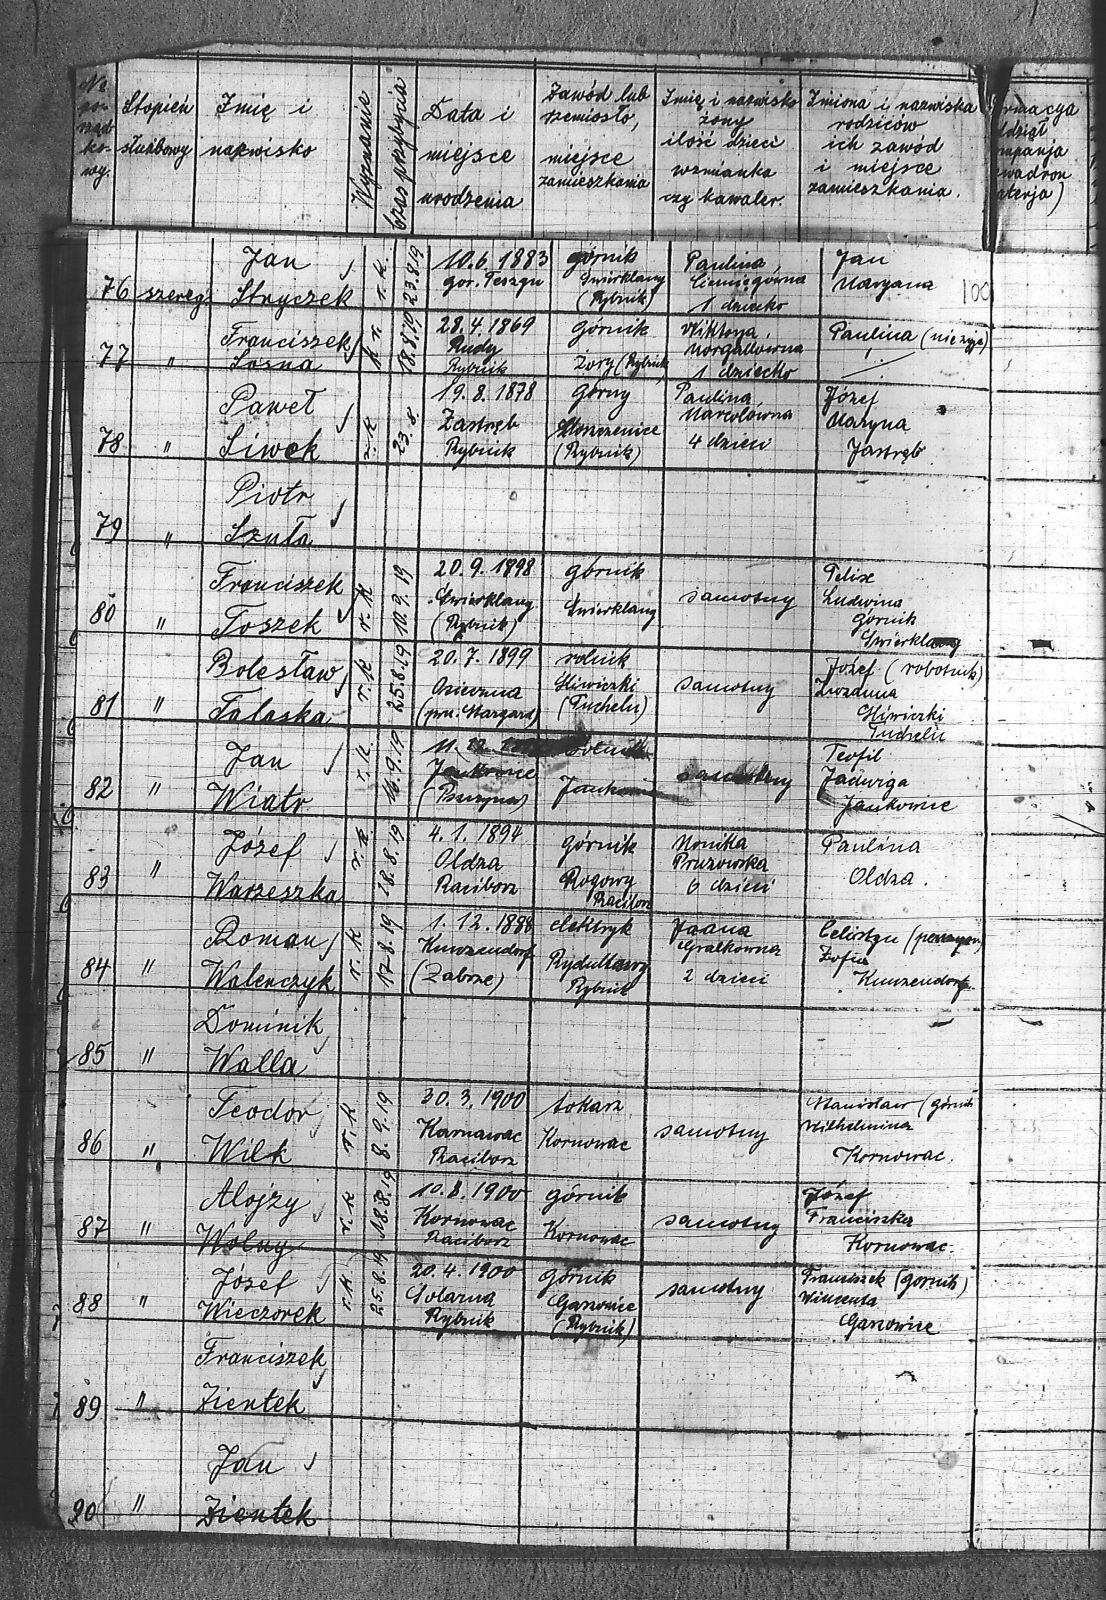 No porządkowy.
Stopień służbowy
Imię i nazwisko
Wyznanie
Czas przybycia
Data i miejsce urodzenia
Zawód lub rzemiosło, miejsce zamieszkania
Imię i nazwisko żony ilość dzieci wzmianka czy kawaler.
Imiona i nazwiska rodziców ich zawód i miejsce zamieszkania.
rmacja
ddział
mpanja
wadron
terja)
76 szereg.
Jan
Stryczek
r. k.
23.8.19
10.6.1883
górnik
Świerklany
(Rybnik)
Paulina
1 dziecko
Jan
Maryana
100
77 "
Franciszek
Sosna
r. k.
28.4.1869
Rudy
Rybnik
górnik
Żory (Rybnik
Wiktorya
1 dziecko
Paulina (nie żyje)
78 "
Paweł
Siwek
r. k
23.8.
19.8.1878
Zastręb
Rybnik
górny
(Rybnik)
Paulina
4 dzieci
Józef
Maryna
Jastręb
79 "
Piotr
Szuła
80 "
Franciszek
Toszek
r. k
10.9.19
20.9.1898
Świerklany
(Rybnik)
górnik
Świerklany
samotny
Felix
Ludwina
górnik
Świerklany
81 "
Bolesław
Talaska
r. k
25.8.19
20.7.1899
rolnik
Śliwiczki
(Tuchela)
samotny
Józef (robotnik)
Zuzanna
Śliwiczki
82 "
Jan
Wiatr
r. k.
16.9.19
(Pszczyna)
samotny
Teofil
Jadwiga
Jankowice
83 "
Józef
Warzeszka
r. k
18.8.19
4.1.1894
Oldza
Racibor
górnik
Rogowy
Racibor
Monika
Pruzowska
6 dzieci
Paulina
Oldza.
84 "
Roman
Walenczyk
r. k
17.8.19
1.12.1888
Kunzendorf
(Zabrze)
elektryk
Rydułtowy
Rybnik
2 dzieci
Zofia
Kunzendorf
85 "
Dominik
Walla
86 "
Teodor
Wilk
r. k
8.9.19
30.3.1900
Karnawac
Racibor
tokarz
Kornowac
samotny
Stanisław (górnik
Wilhelmina
Kornowac.
87 "
Alojzy
Wolny
r. k
18.8.19
10.8.1900
Kornowac
Racibor
górnik
Kornowac
samotny
Józef
Franciszka
Kornowac.
88 "
Józef
Wieczorek
r. k
25.8.19
20.4.1900
Rybnik
górnik
Gaszowice
(Rybnik)
samotny
Franciszek (górnik)
Wincenta
Gaszowice
89 "
Franciszek
Zientek
90 "
Jan
Zientek